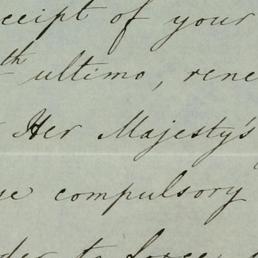 ceipt of your
th ultimo, rene
Her Majesty's
compulsory
to force